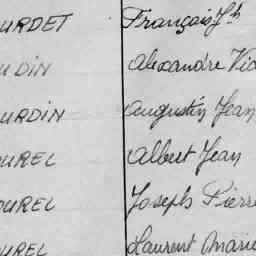 URDET François Jh
UDIN Alexandre Vic
URDIN Augustin Jean
OUREL Albert Jean
OUREL Joseph Pierre
OUREL Laurent Marie